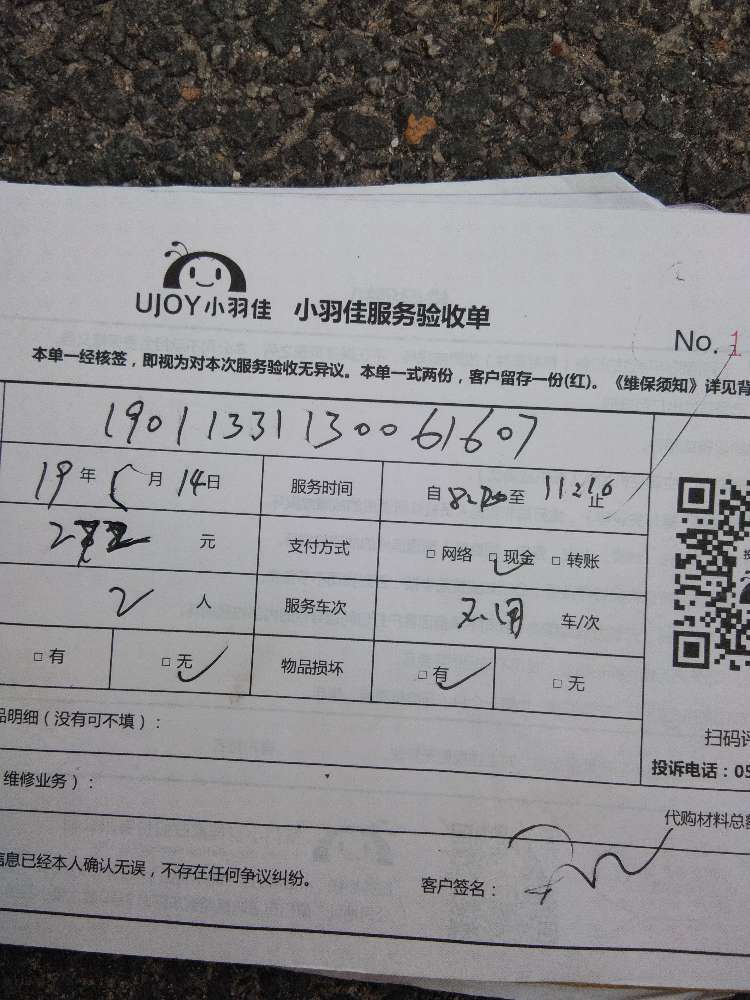 UJOY小羽佳 小羽佳服务验收单
No. 1
本单一经核签，即视为对本次服务验收无异议。本单一式两份，客户留存一份(红)。《维保须知》详见背
1901133113006 1607
19年 月 14日 服务时间 自 至 止
元 支付方式 □ 网络 □ 现金 □ 转账
2 人 服务车次 车/次
□ 有 □ 无 物品损坏 □ 有 □ 无
品明细（没有可不填）：
扫码评
投诉电话：05
维修业务）：
代购材料总额
信息已经本人确认无误，不存在任何争议纠纷。
客户签名：